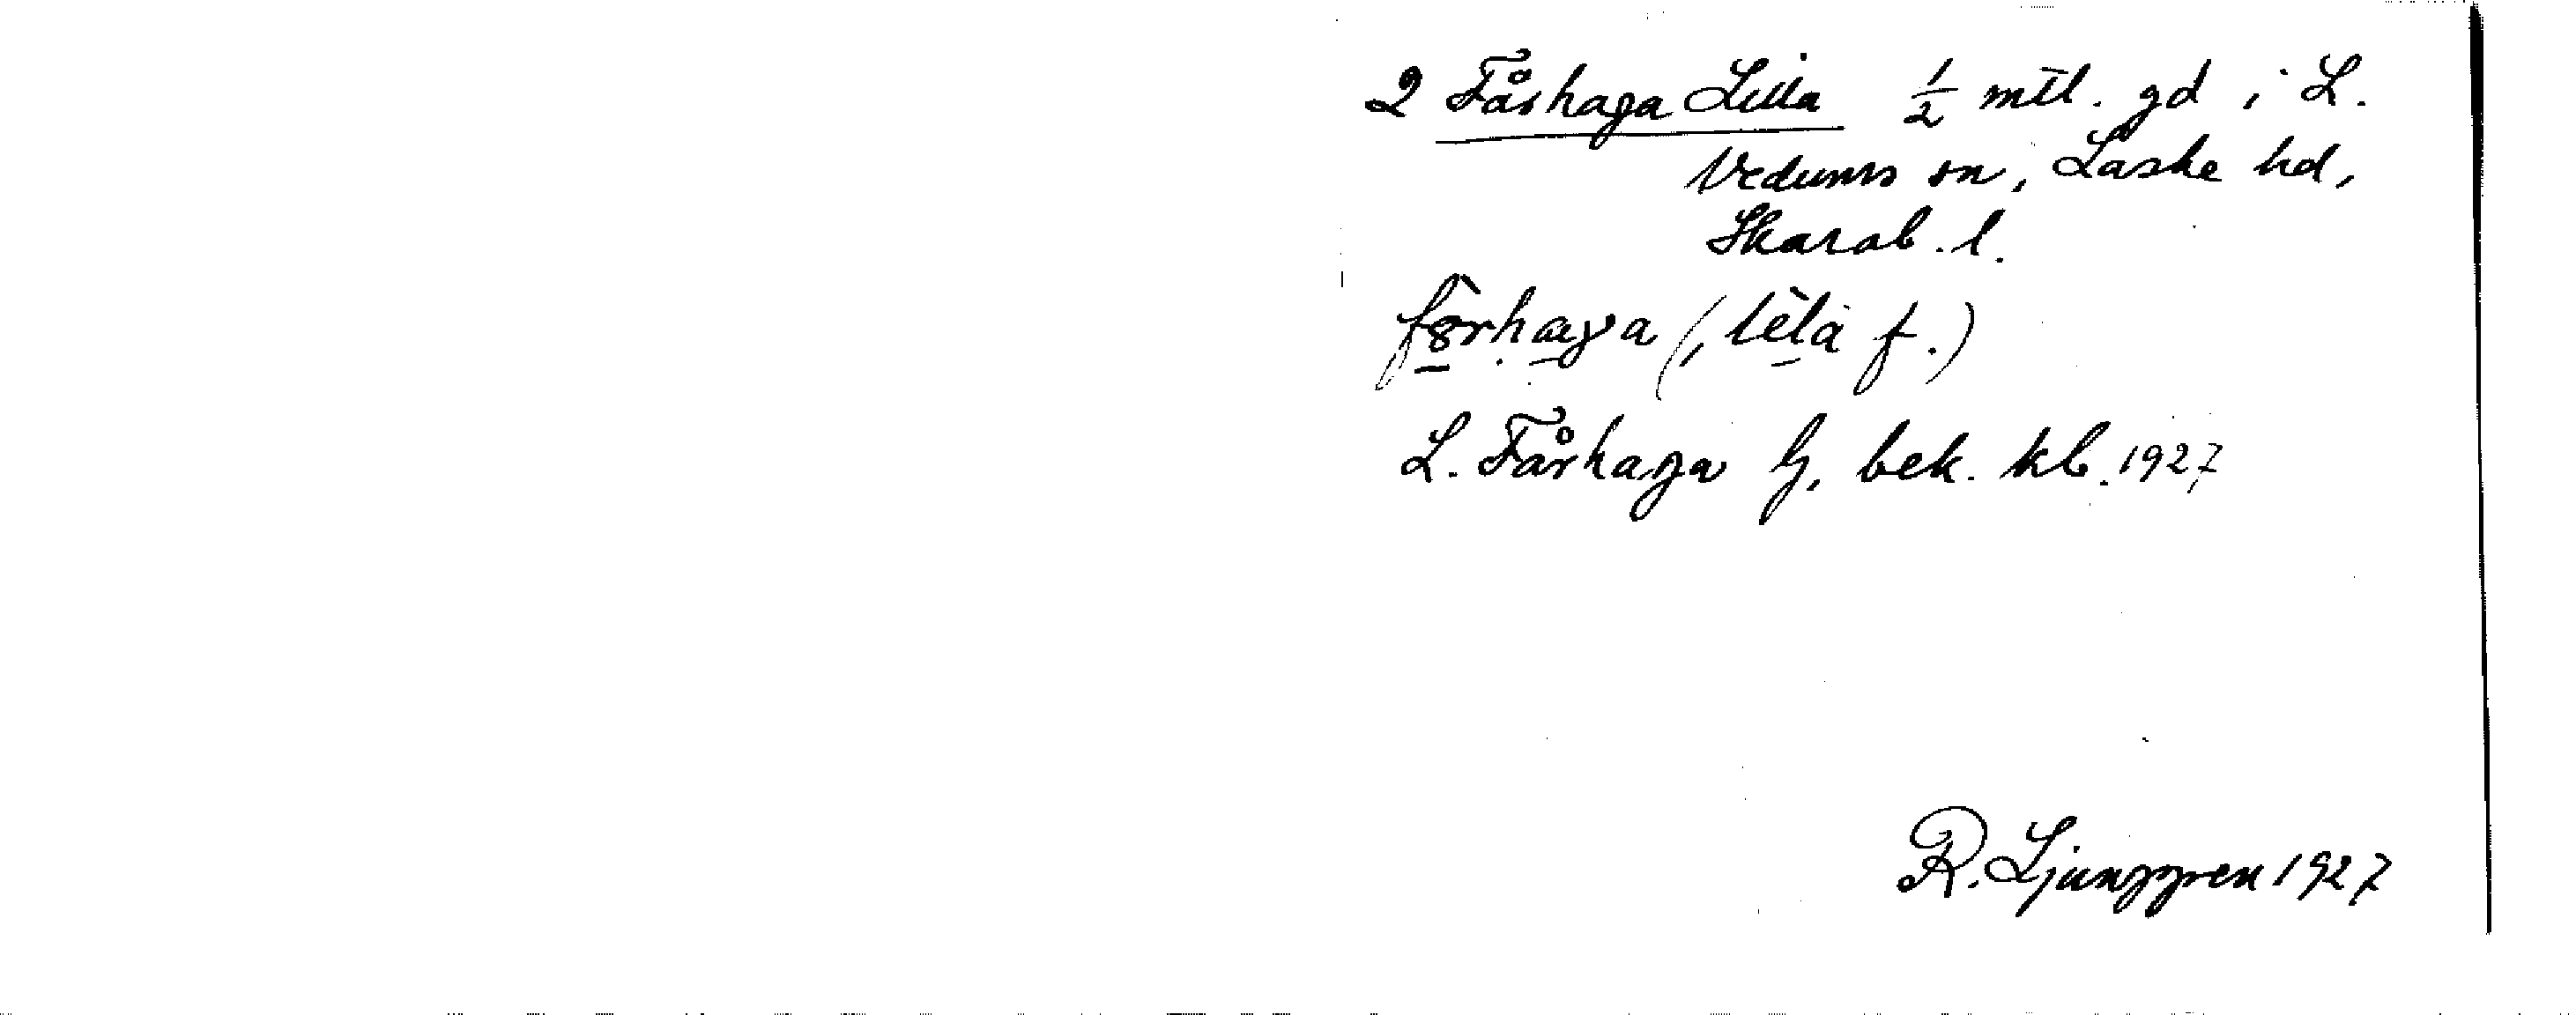 2 Fårhaga Lilla ½ mtl. gd i L.
Vedums sn, Laske hd,
Skarab. l.
L. Fårhaga G, bek. kb. 1927
R. Ljunggren 1927